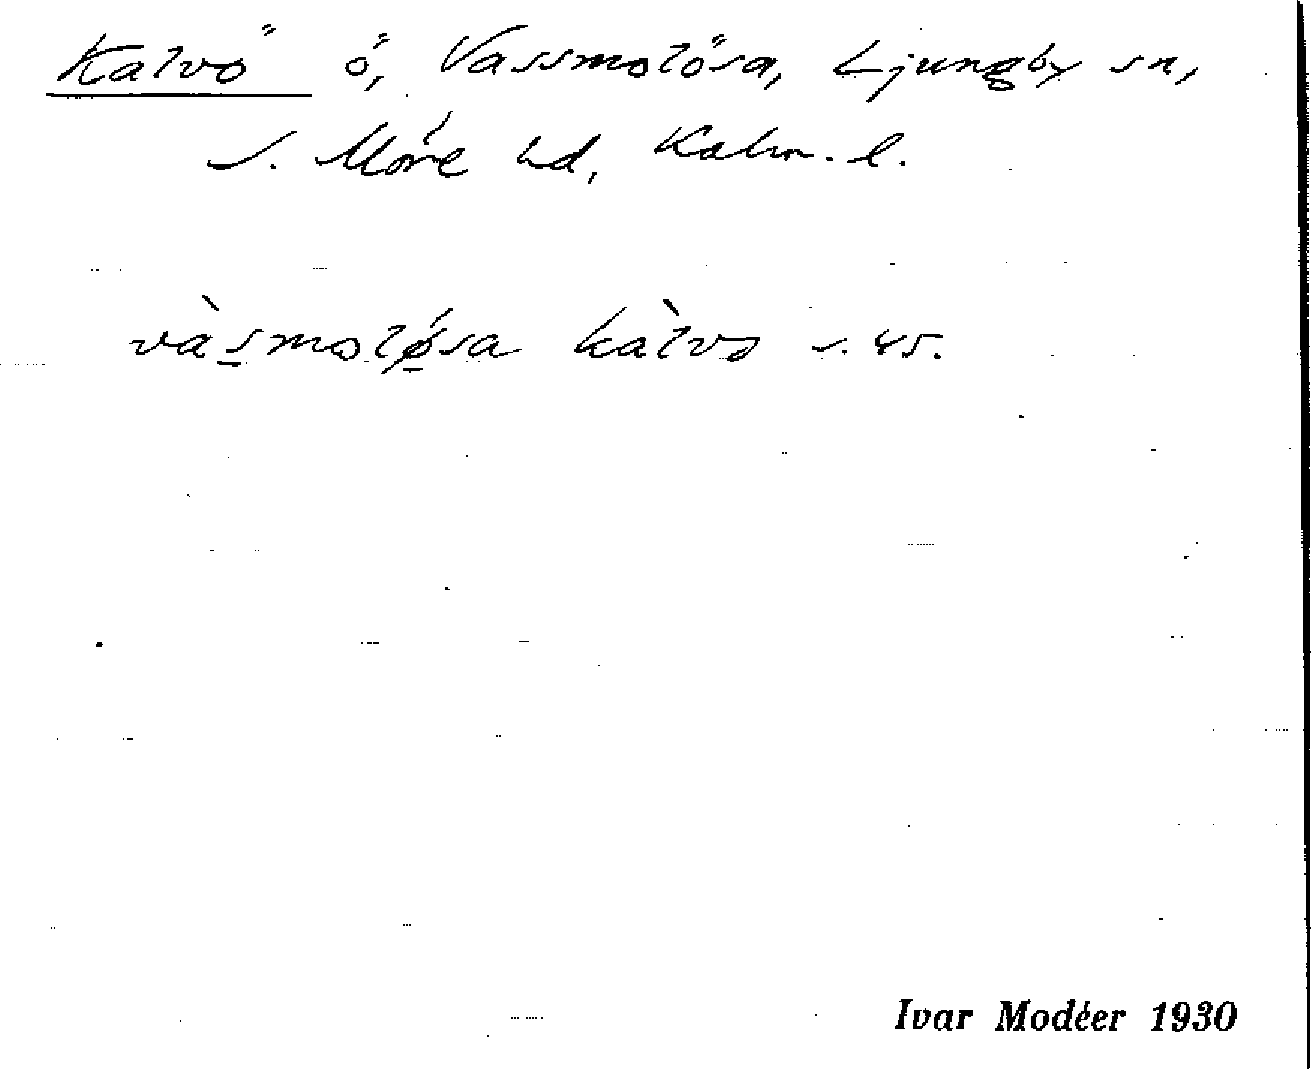 Kalvö ö, Vassmolösa, Ljungby sn,
S. Möre hd, Kalm. l.
vàsmolǿsa kàlvo s. 45.
Ivar Modéer 1930